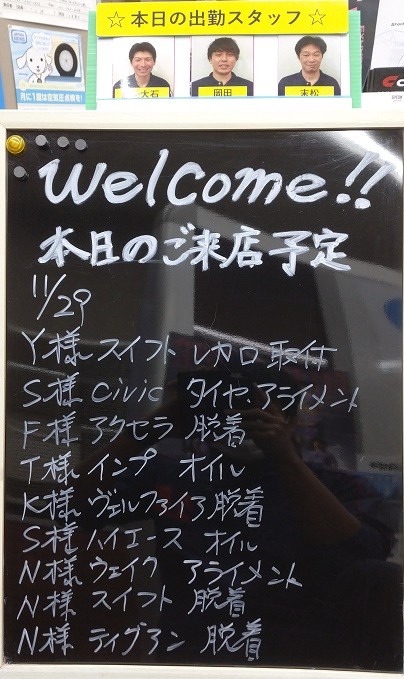 ☆本日の出勤スタッフ☆
大石 岡田 末松
月に1度は空気圧点検を!
Welcome!!
本日のご来店予定
11/29
Y様 スイフト レカロ 取付
S様 civic タイヤ・アライメント
F様 アクセラ 脱着
T様 インプ オイル
K様 ヴェルファイア 脱着
S様 ハイエース オイル
N様 ウェイク アライメント
N様 スイフト 脱着
N様 ティグアン 脱着